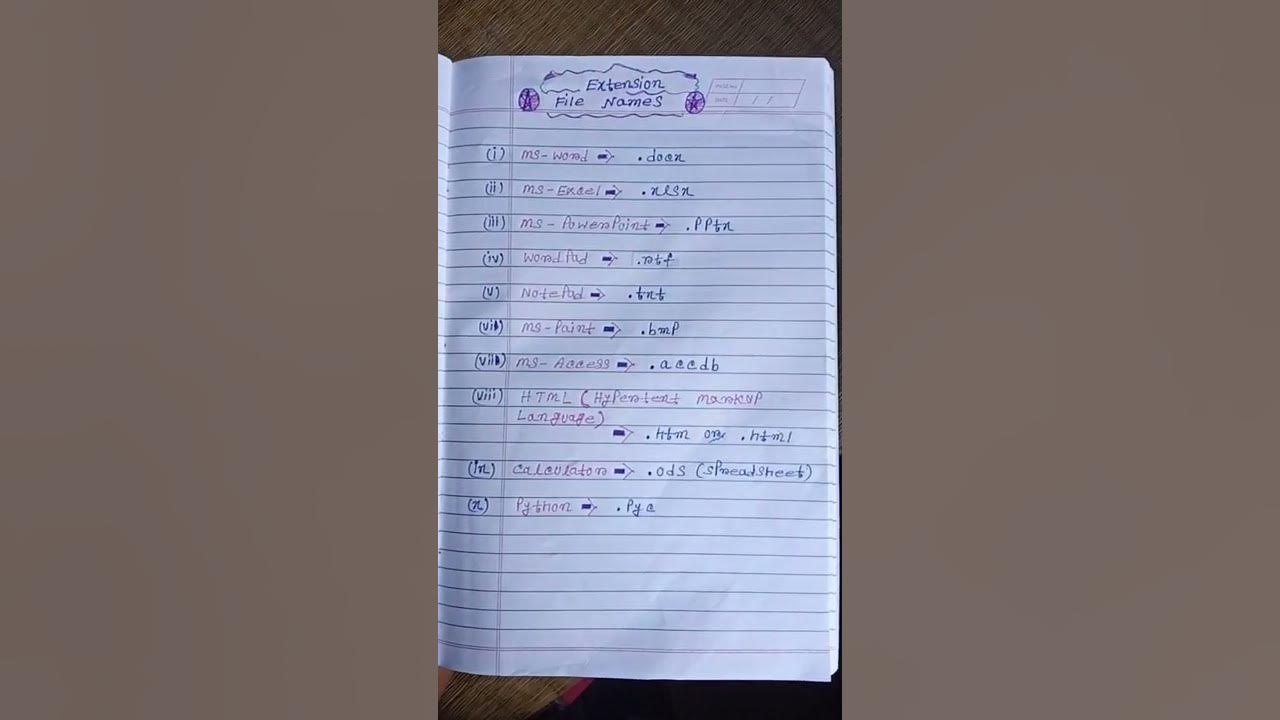 Extension
File Names
PAGE No.
DATE / /
(i) MS-Word ➡ .docx
(ii) MS-Excel ➡ .xlsx
(iii) MS-PowerPoint ➡ .PPtx
(iv) WordPad ➡ .rtf
(v) NotePad ➡ .txt
(vi) MS-Paint ➡ .bmp
(vii) MS-Access ➡ .accdb
(viii) HTML (HyPertext MarkUP
Language)
➡ .htm or .html
(ix) Calculator ➡ .ods (SpreadSheet)
(x) Python ➡ .Pyc